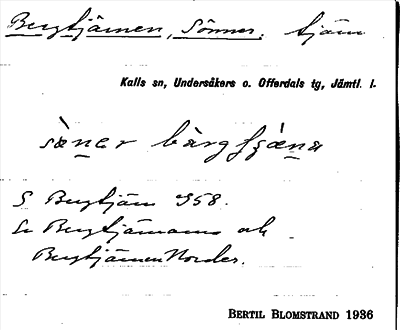 Bergtjärnen, Sönner, tjärn
Kalls sn, Undersåkers o. Offerdals tg, Jämtl. l.
sä̀nar bärg
S Bergtjärn 958.
Se Bergtjärnarna och
Bergtjärnen Norder.
BERTIL BLOMSTRAND 1936